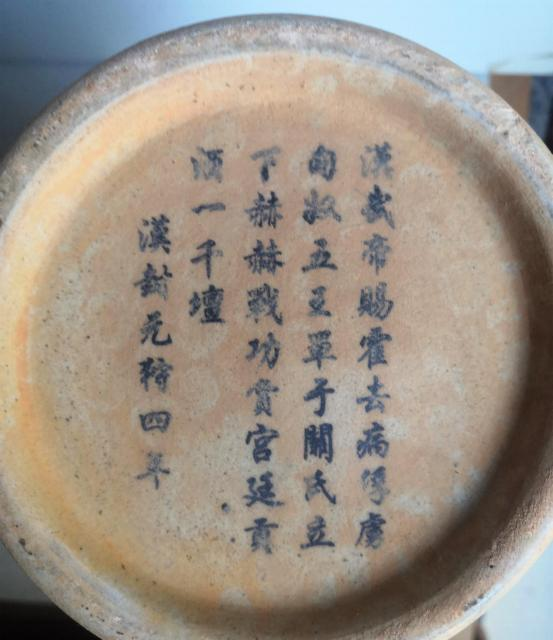 漢武帝賜霍去病俘虜
匈奴五王單于關氏立
下赫赫戰功賞宮廷貢
酒一千壇
漢封元狩四年